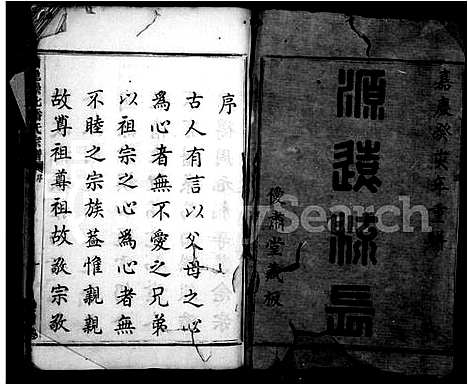 源遠流長
嘉慶癸未年重
優肅堂藏板
序
古人有言以父母之心
為心者無不愛之兄弟
以祖宗之心為心者無
不睦之宗族蓋惟親親
故尊祖尊祖故敬宗敬
Search